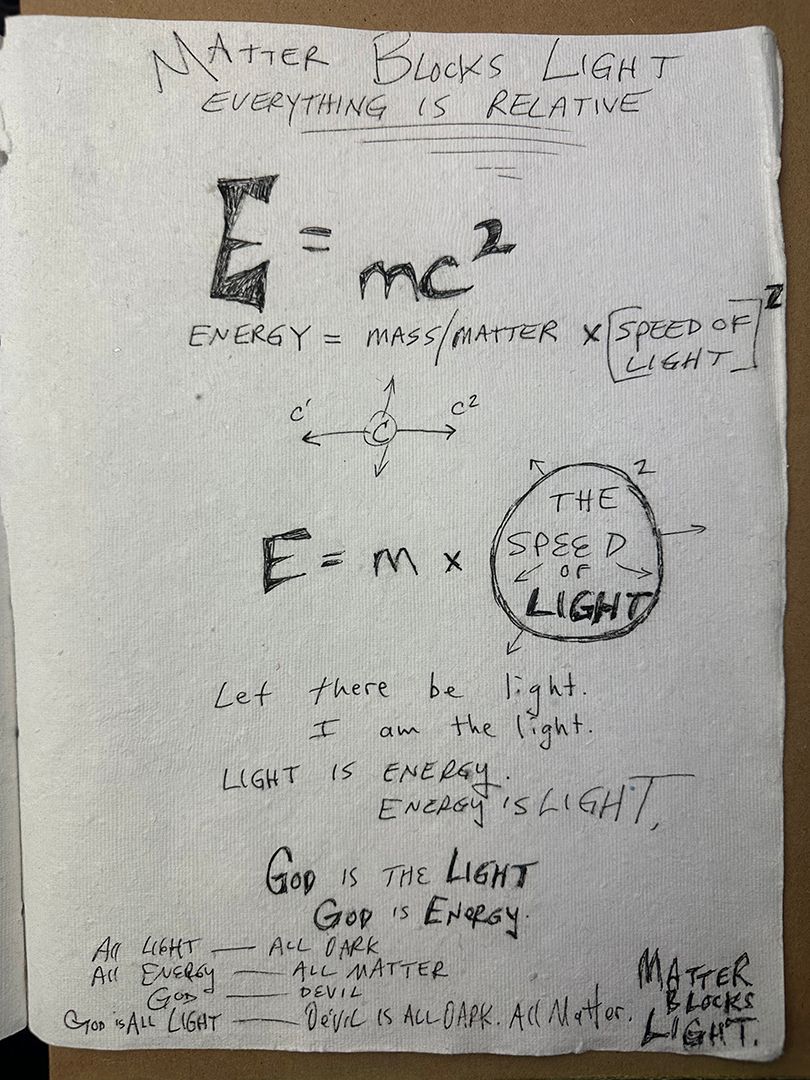 MATTER BLOCKS LIGHT
EVERYTHING IS RELATIVE
E = mc²
ENERGY = MASS/MATTER x [SPEED OF LIGHT]²
c' C c²
E = m x (THE SPEED OF LIGHT)²
Let there be light.
I am the light.
LIGHT IS ENERGY.
ENERGY IS LIGHT.
GOD IS THE LIGHT
GOD IS ENERGY.
All LIGHT — ALL DARK
All ENERGY — ALL MATTER
GOD — DEVIL
GOD is ALL LIGHT — DEVIL IS ALL DARK. All Matter.
MATTER
BLOCKS
LIGHT.